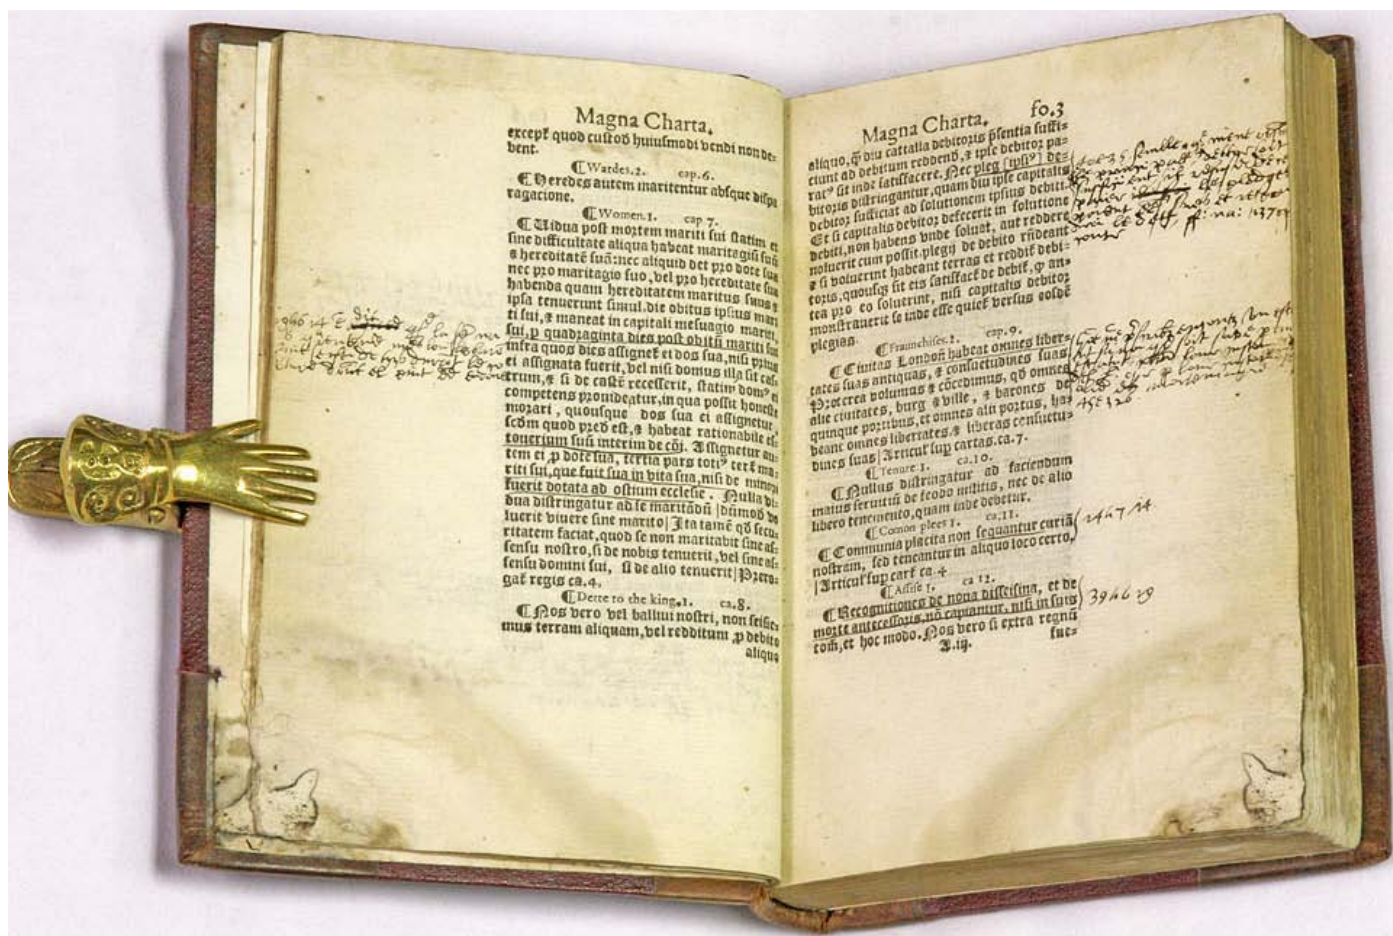 Magna Charta.
except quod custod huiusmodi vendi non de-
bent.
¶Wardes.2. cap.6.
¶Heredes autem maritentur absque dispa
ragacione.
¶Women.1. cap 7.
¶Uidua post mortem mariti sui statim et
sine difficultate aliqua habeat maritagiū suū
& hereditatē suā: nec aliquid det pro dote sua
nec pro maritagio suo, vel pro hereditate sua
habenda quam hereditatem maritus suus &
ipsa tenuerunt simul. die obitus ipsius mari
ti sui, & maneat in capitali mesuagio mariti
sui, p quadraginta dies post obitū mariti sui
infra quos dies assignet ei dos sua, nisi prius
ei assignata fuerit, vel nisi domus illa sit cas-
trum, & si de castē recesserit, statim domꝰ ei
competens prouideatur, in qua possit honeste
morari, quousque dos sua ei assignetur,
scdm quod pred est, & habeat rationabile es-
touerium suū interim de cōi. Assignetur au-
tem ei p dote sua, tertia pars totiꝰ terr̄ ma-
riti sui, que fuit sua in vita sua, nisi de minori
fuerit dotata ad ostium ecclesie. Nulla vi-
dua distringatur ad se maritādū | dūmod vo
luerit viuere sine marito | Ita tamē qd secu-
ritatem faciat, quod se non maritabit sine as-
sensu nostro, si de nobis tenuerit, vel sine as-
sensu domini sui, si de alio tenuerit | Prero-
gat regis ca.4.
¶Dette to the king.1. ca.8.
¶Nos vero vel balliui nostri, non seisie-
mus terram aliquam, vel redditum p debito
aliquo
Magna Charta. fo.3
aliquo, q diu cattalla debitoris psentia suffi-
ciunt ad debitum reddend, & ipse debitor pa-
ratꝰ sit inde satisfacere. Nec pleg [ipsiꝰ] de-
bitoris distringantur, quam diu ipse capitalis
debitor sufficiat ad solutionem ipsius debiti.
Et si capitalis debitor defecerit in solutione
debiti, non habens vnde soluat, aut reddere
noluerit cum possit. plegij de debito rñdeant
& si voluerint habeant terras et reddit debi-
toris, quousq; sit eis satisfact de debit, q an-
tea pro eo soluerint, nisi capitalis debitor
monstrauerit se inde esse quiet versus eosdē
plegias.
¶Fraunchises.1. cap.9.
¶Ciuitas London habeat omnes liber-
tates suas antiquas, & consuetudines suas
Preterea volumus & cōcedimus, qd omnes
alie ciuitates, burg & ville, & barones de
quinque portibus, et omnes alii portus, ha-
beant omnes libertates & liberas consuetu-
dines suas | Articul sup cartas.ca.7.
¶Tenure 1. ca.10.
¶Nullus distringatur ad faciendum
maius seruitiū de feodo militis, nec de alio
libero tenemento, quam inde debetur.
¶Comon plees 1. ca.11.
¶Communia placita non sequantur curiā
nostram, sed teneantur in aliquo loco certo.
| Articul sup cart ca.4
¶Assise 1. ca 12.
¶Recognitiones de noua disseisina, et de
morte antecessoris, nō capiantur, nisi in suis
com, et hoc modo. Nos vero si extra regnū
A.iij. fue-